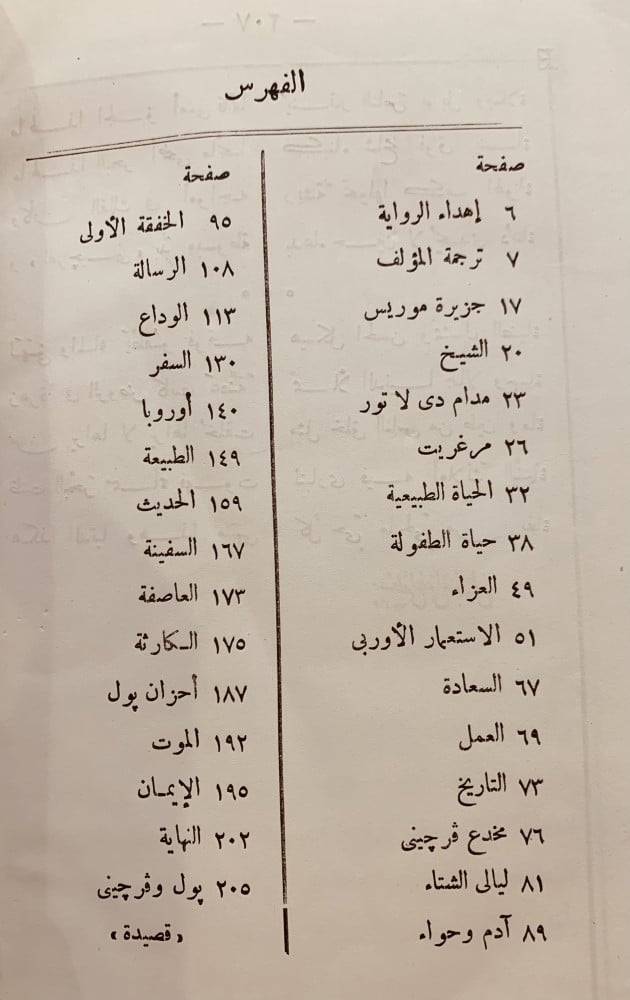 الفهرس
صفحة
٦ إهداء الرواية
٧ ترجمة المؤلف
١٧ جزيرة موريس
٢٠ الشيخ
٢٣ مدام دى لا تور
٢٦ مرغريت
٣٢ الحياة الطبيعية
٣٨ حياة الطفولة
٤٩ العزاء
٥١ الاستعمار الأوربى
٦٧ السعادة
٦٩ العمل
٧٣ التاريخ
٧٦ مخدع ڤرچينى
٨١ ليالى الشتاء
٨٩ آدم وحواء
صفحة
٩٥ الخفقة الأولى
١٠٨ الرسالة
١١٣ الوداع
١٣٠ السفر
١٤٠ أوروبا
١٤٩ الطبيعة
١٥٩ الحديث
١٦٧ السفينة
١٧٣ العاصفة
١٧٥ الكارثة
١٨٧ أحزان پول
١٩٢ الموت
١٩٥ الإيمان
٢٠٢ النهاية
٢٠٥ پول وڤرچينى
«قصيدة»